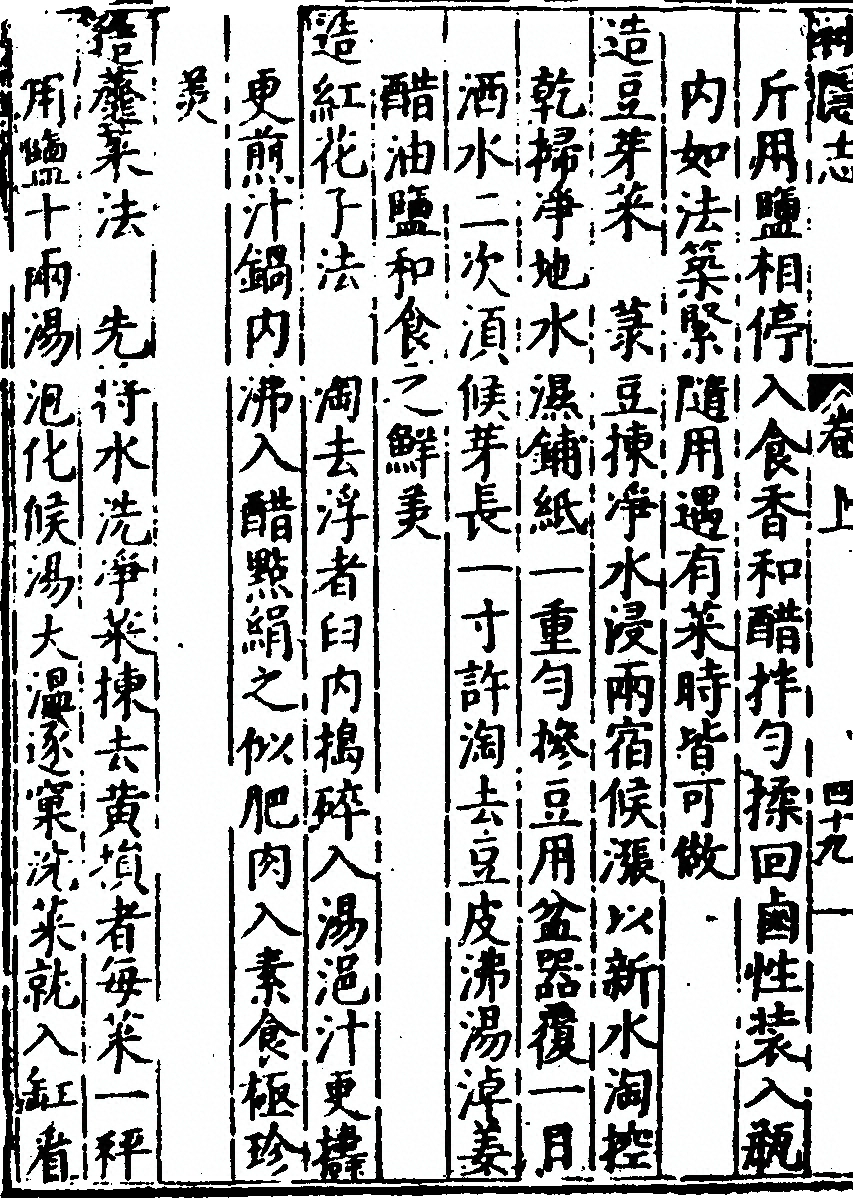 隱志 卷上 四十九
斤用鹽相停入食香和醋拌勻揉回鹵性装入瓶
内如法築緊隨用遇有菜時皆可做
造豆芽菜 菉豆揀淨水浸兩宿候漲以新水淘控
乾掃淨地水濕鋪紙一重勻摻豆用盆器覆一日
洒水二次湏候芽長一寸許淘去豆皮沸湯淖姜
醋油鹽和食之鮮美
造紅花子法 淘去浮者臼内搗碎入湯浥汁更擣
更煎汁鍋内沸入醋點絹之似肥肉入素食極珍
美
造虀菜法 先將水洗淨菜揀去黄損者每菜一秤
用鹽十兩湯泡化候湯大溫逐窠洗菜就入缸看